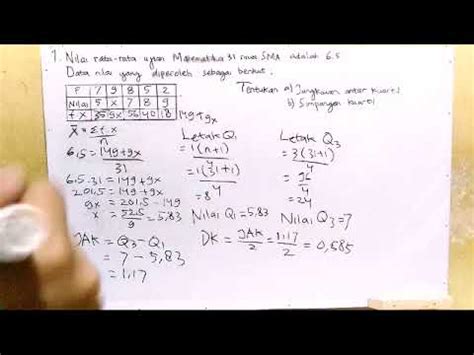 1. Nilai rata-rata ujian Matematika 31 siswa SMA adalah 6.5
Data nilai yang diperoleh sebagai berikut.
F 7 9 8 5 2
Nilai 5 x 7 8 9
f x 35 9x 56 40 18 149+9x
Tentukan a) Jangkauan antar kuartil
b) Simpangan kuartil
x̄ = Σf.x / n
6,5 = 149+9x / 31
6.5.31 = 149+9x
201,5 = 149+9x
9x = 201,5 - 149
x = 52,5 / 9 = 5,83
Letak Q1
= 1(n+1) / 4
= 1(31+1) / 4
= 8
Nilai Q1 = 5,83
Letak Q3
= 3(31+1) / 4
= 96 / 4
= 24
Nilai Q3 = 7
JAK = Q3 - Q1
= 7 - 5,83
= 1,17
DK = JAK / 2 = 1,17 / 2 = 0,585